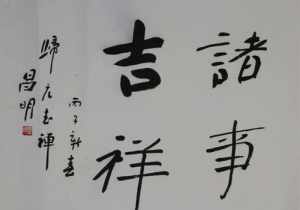 諸事
吉祥
丙子新春
歸元古禪
昌明